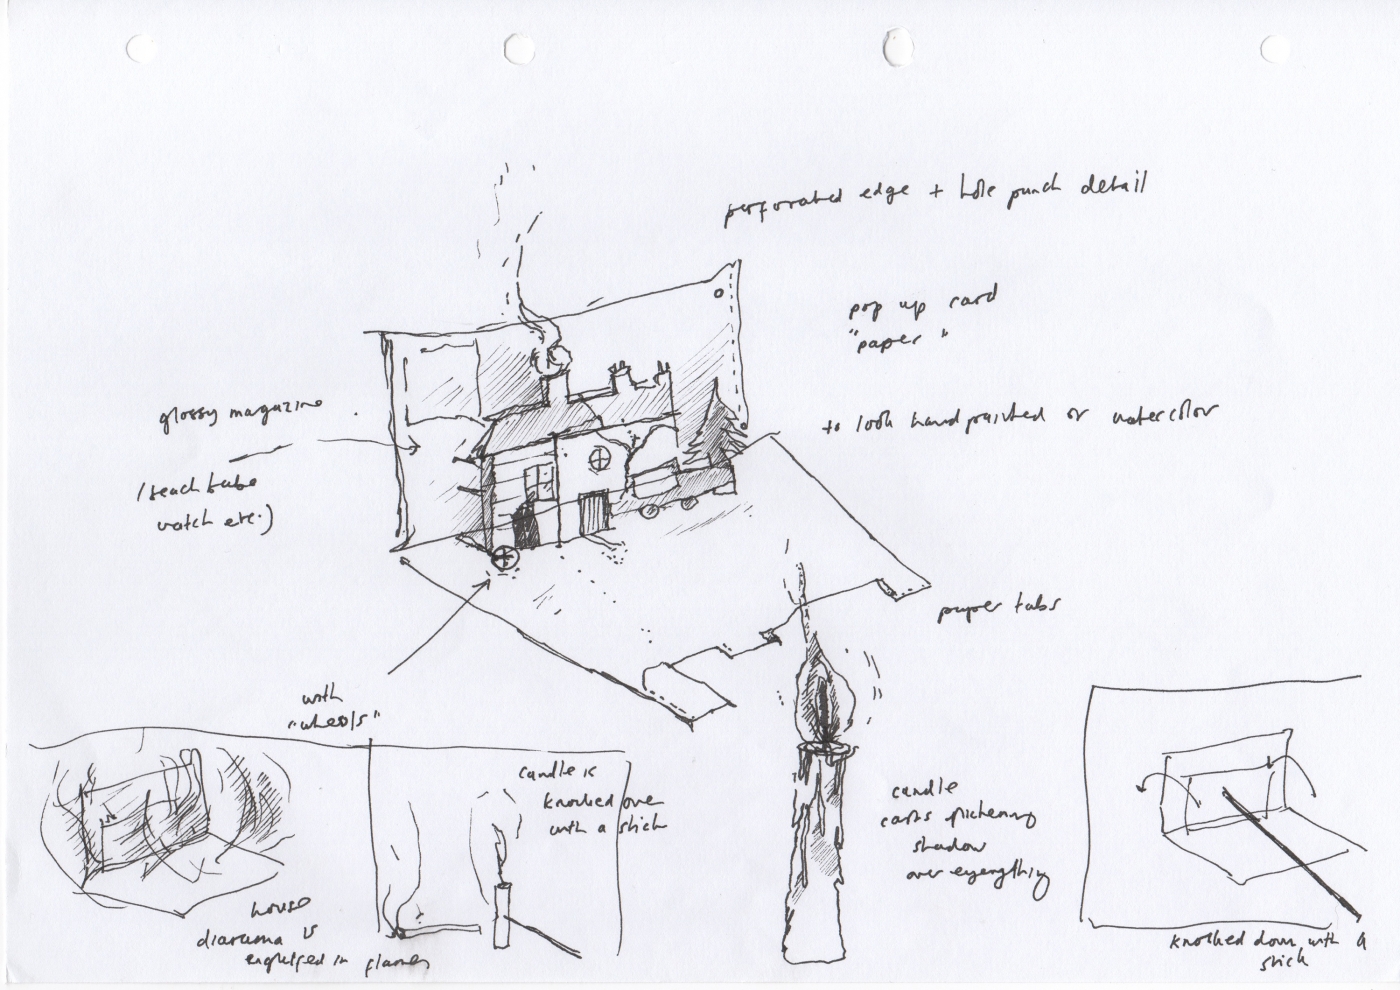 perforated edge + hole punch detail
pop up card
"paper"
to look hand painted or watercolor
glossy magazine
watch etc.)
paper tabs
with
"wheels"
candle is
knocked over
with a stick
candle
casts flickering
shadow
over everything
house
diarama is
engulfed in flames
knocked down with a
stick